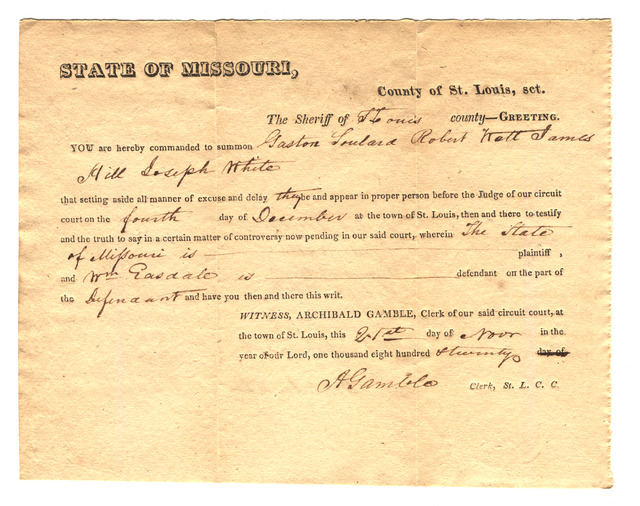 STATE OF MISSOURI,
County of St. Louis, sct.
The Sheriff of St Louis county—GREETING.
YOU are hereby commanded to summon Gaston Soulard Robert Watt James
Hill Joseph White
that setting aside all manner of excuse and delay they be and appear in proper person before the Judge of our circuit
court on the fourth day of December at the town of St. Louis, then and there to testify
and the truth to say in a certain matter of controversy now pending in our said court, wherein The State
of Missouri is plaintiff,
and Wm Easdale is defendant on the part of
the Defendant and have you then and there this writ.
WITNESS, ARCHIBALD GAMBLE, Clerk of our said circuit court, at
the town of St. Louis, this 21st day of Novr in the
year of our Lord, one thousand eight hundred & twenty day of
A Gamble Clerk, St. L. C. C.